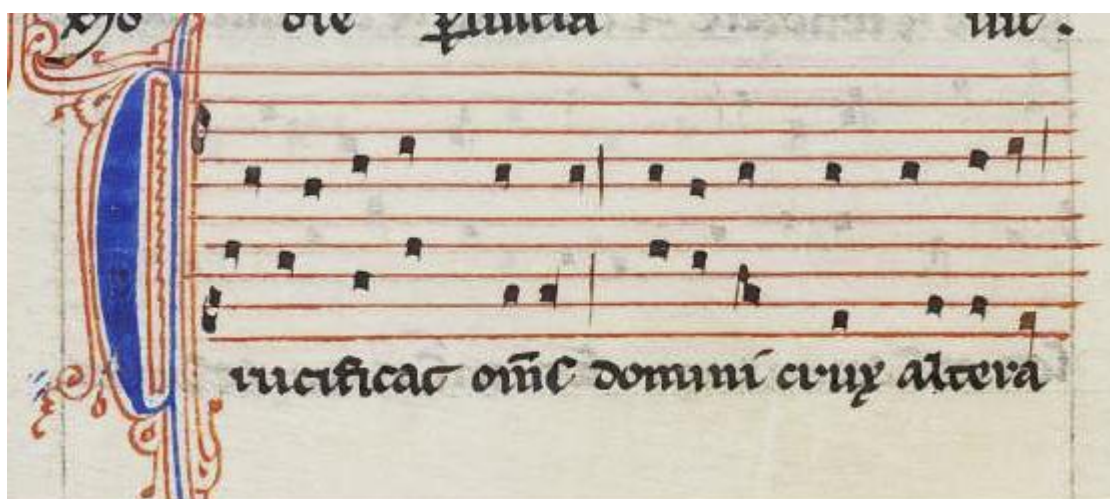 die
Crucificat om̄s domini crux altera